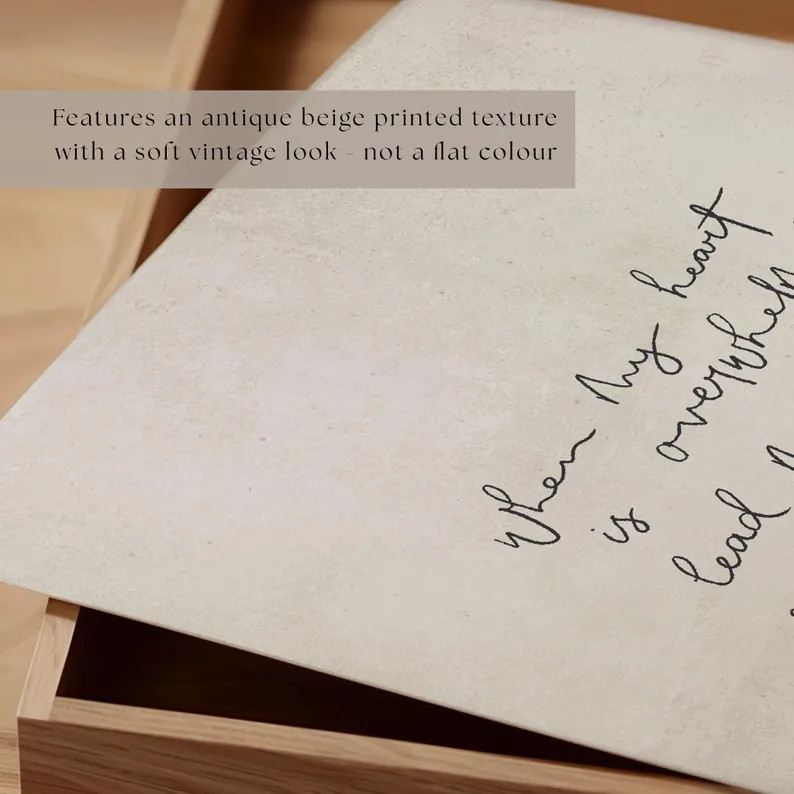 Features an antique beige printed texture
with a soft vintage look - not a flat colour
When my heart
is
lead